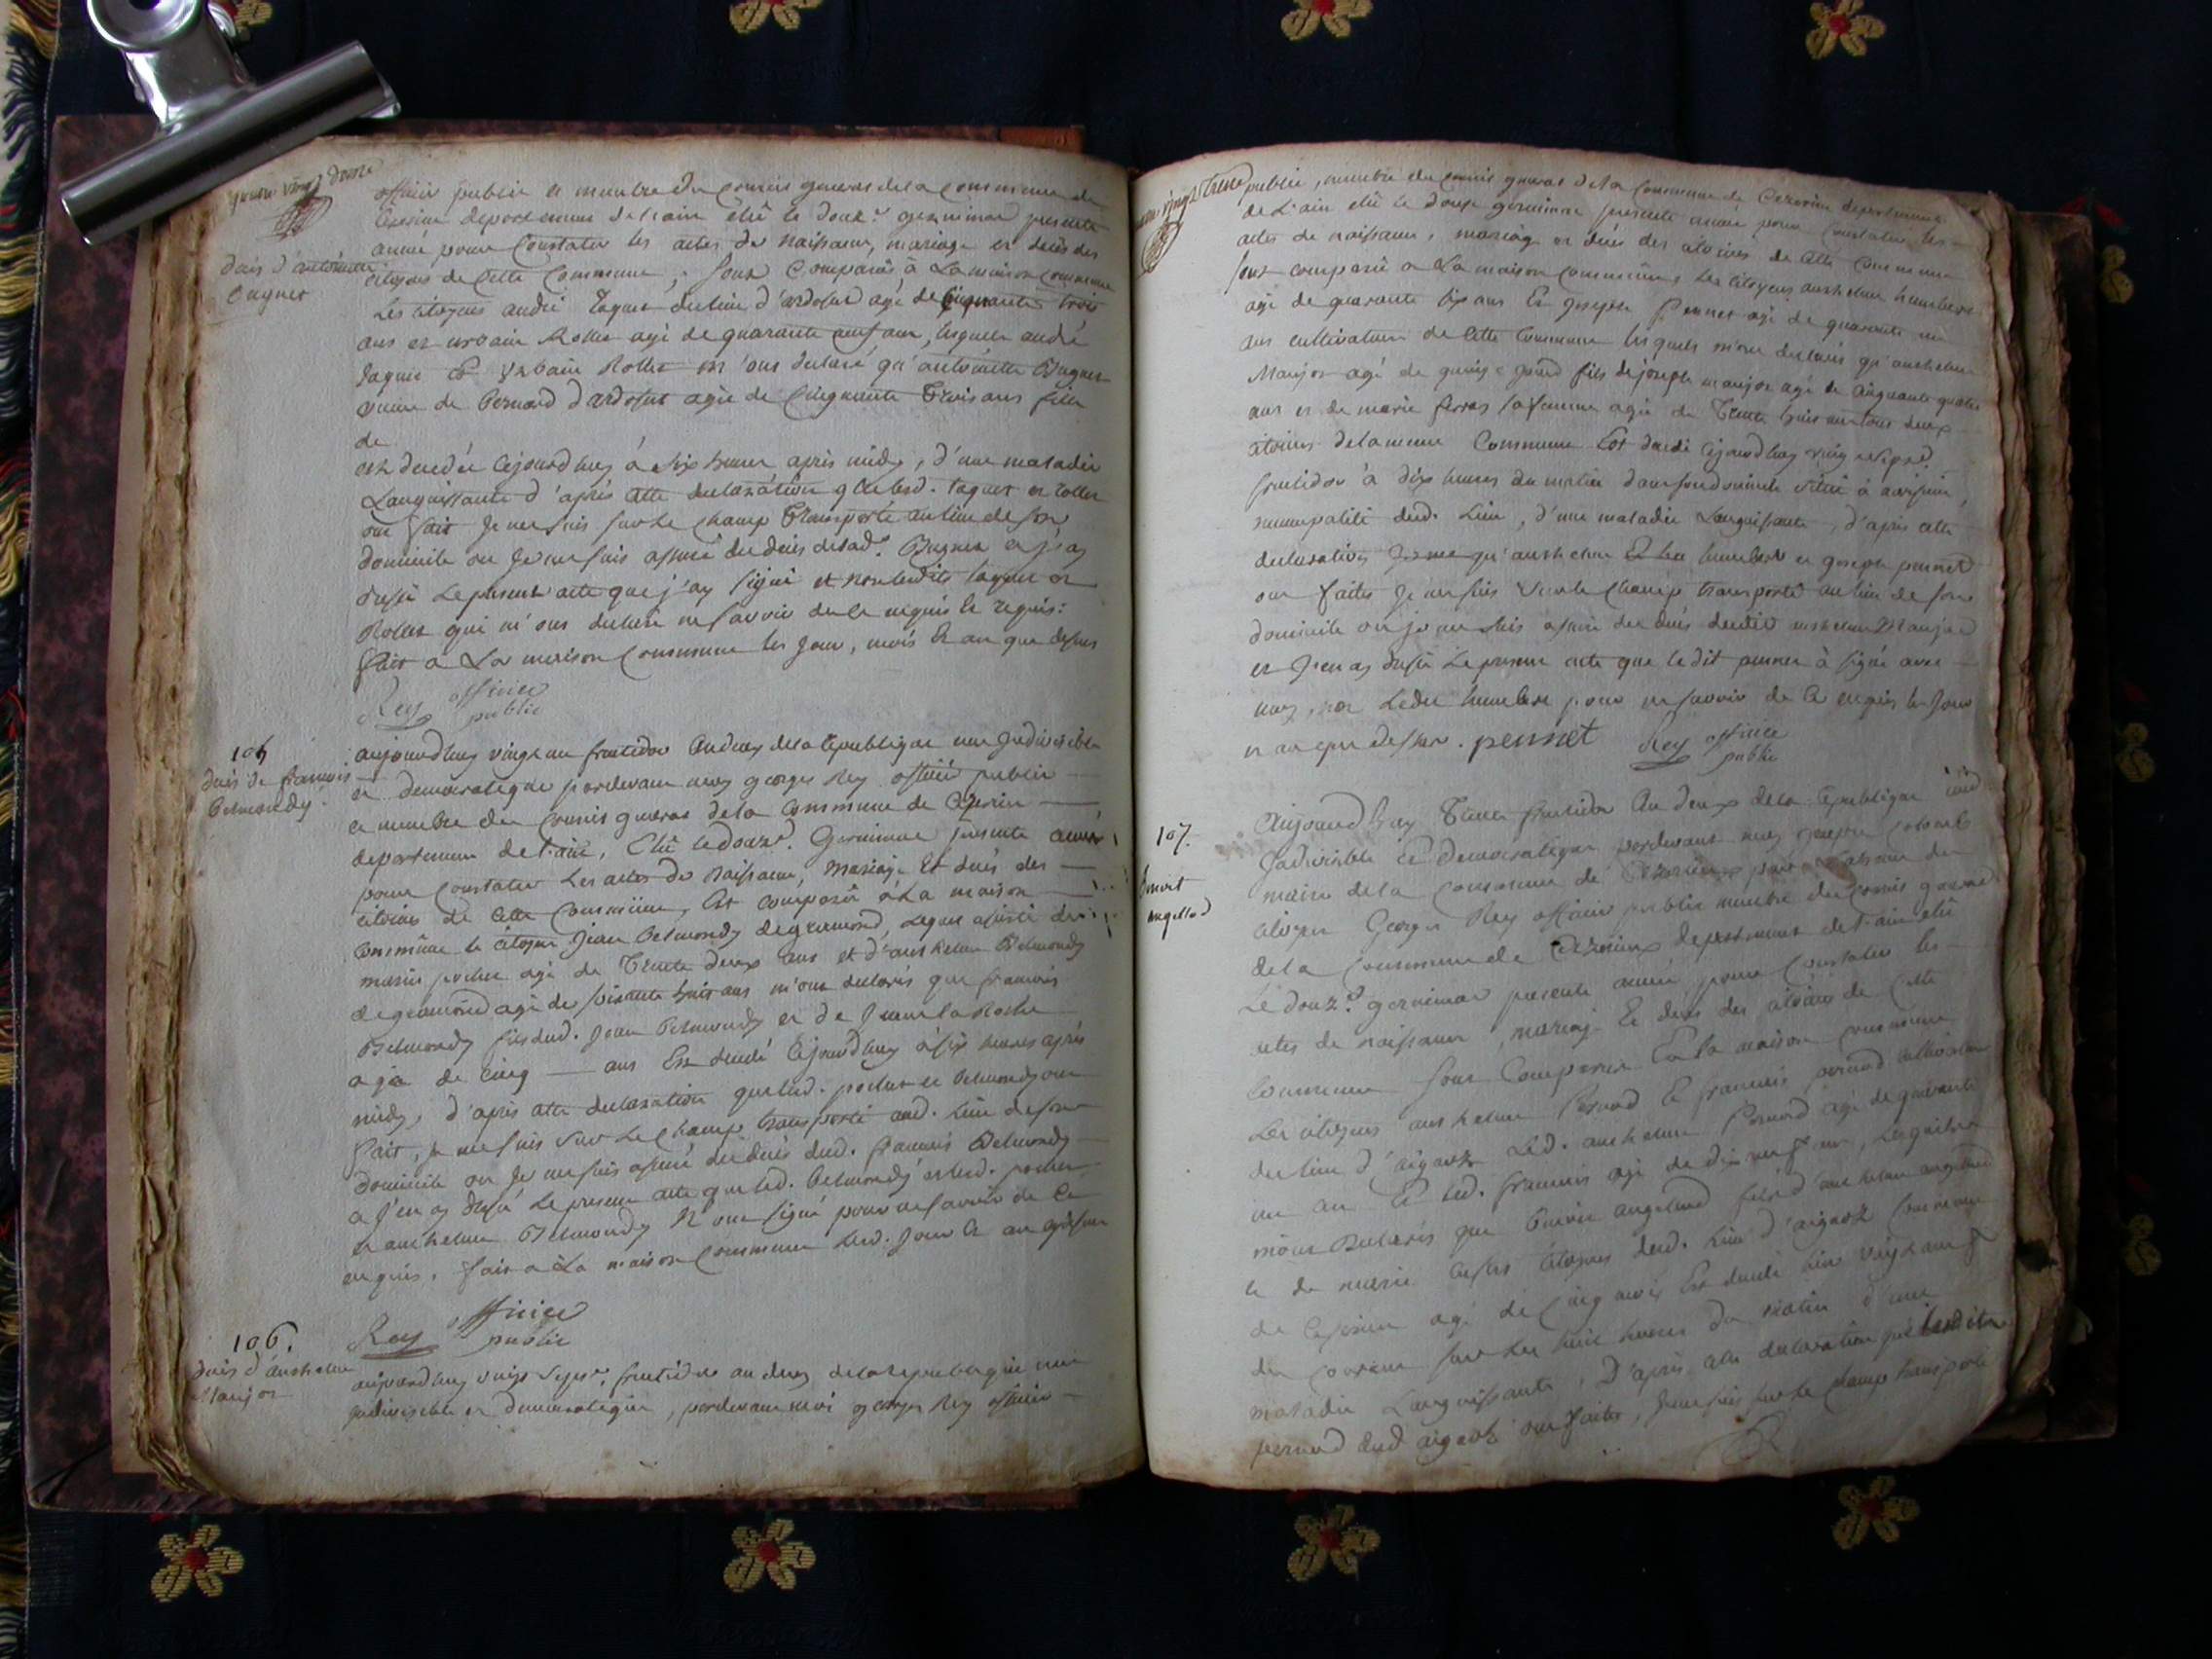 quatre vingt douze
officier public et membre du conseil general de la commune de
departement de l'ain élû le douze germinal presente
année pour constater les actes de naissance, mariage et deces des
deces d'antoinette
citoyens de cette commune, sont comparus à la maison commune
Bugnet
les citoyens andré taquet du lieu d'ardosset agé de cinquante trois
ans et urbain Rollet agé de quarante neuf ans, lesquels andré
taquet et urbain Rollet m'ont declaré qu'antoinette Bugnet
veuve de Bernard d'ardosset agée de cinquante trois ans fille
de
est decedée cejourd'huy à six heures après midy, d'une maladie
Languissante d'après cette declaration que lesd. taquet et rollet
ont fait je me suis sur le champ transporté au lieu de son
domicile ou je me suis assuré du deces de lad. Bugnet et j'ay
dressé le present acte que j'ay signé et non lesdits taquet et
Rollet qui m'ont declaré ne savoir de ce requis
fait a La maison commune les jour, mois et an que dessus
Rey officier
public
105
aujourd'huy vingt un fructidor an deux de la republique une indivisible
deces de francois
Belmondy
et democratique pardevant moy georges Rey officier public
et membre du conseil general de la commune de
departement de l'ain, élû le douze. Germinal presente année
pour constater les actes de naissance, mariage et deces des
citoiens de cette commune, est comparu à La maison
commune le citoyen jean Belmondy de gramond, lequel assisté de
marin pochet agé de trente deux ans et d'anthelme Belmondy
de gramond agé de soixante huit ans m'ont declaré que francois
Belmondy fils dud. jean Belmondy et de jeanne la Roche
agé de cinq ans est decedé cejourd'huy à six heures après
midy, d'après cette declaration que led. pochet et Belmondy ont
fait, je me suis sur le champ transporté aud. lieu de son
domicile ou je me suis assuré du deces dud. francois Belmondy
et j'en ay dressé le present acte que led. Belmondy et led. pochet
et anthelme Belmondy n'ont signé pour ne savoir de ce
requis. fait a La maison commune lesd. jour et an que dessus
Rey officier
public
106.
deces d'anthelme
Maujot
aujourd'huy vingt sept fructidor an deux de la republique une
indivisible et democratique, pardevant moi georges Rey officier
quatre vingt treize
public, membre du conseil general de la commune de departement
de L'ain élû le douze germinal presente année pour constater les
actes de naissance, mariage et deces des citoiens de cette commune
sont comparu a La maison commune, les citoyens anthelme humbert
agé de quarante six ans et joseph Pennet agé de quarante un
ans cultivateurs de cette commune lesquels m'ont declaré qu'anthelme
Maujot agé de quinze fils de joseph maujot agé de cinquante quatre
ans et de marie ferras sa femme agée de trente huit ans tous deux
citoiens de la meme commune est decedé cejourd'huy vingt sept
fructidor à dix heures du matin dans son domicile situé à
municipalité dud. lieu, d'une maladie Languissante, d'après cette
declaration qu'anthelme humbert et joseph pennet
ont faites je me suis sur le champ transporté au lieu de son
domicile ou je me suis assuré du deces dudit anthelme Maujot
et j'en ay dressé le present acte que le dit pennet à signé avec
moy, non Ledit humbert pour ne savoir de ce requis les jour
et an que dessus. pennet Rey officier
public
107.
Benoit
angelloz
Aujourd'huy trente fructidor an deux de la republique une
indivisible et democratique pardevant moy
maire de la commune de pour L'absence du
citoyen Georges Rey officier public membre du conseil general
de la commune de departement de l'ain élû
Le douz. germinal presente année pour constater les
actes de naissance, mariage et deces des citoiens de cette
commune sont comparus En la maison commune
Les citoyens anthelme Pernod et francois pernod cultivateurs
du lieu d'aignoz led. anthelme Pernod agé de quarante
un an et led. francois agé de dix neuf ans, lesquels
m'ont declarés que benoit angelloz fils d'anthelme angelloz
et de marie citoyens dud. lieu d'aignoz commune
de agé de cinq mois est decedé hier vingt neuf
du courant sur les huit heures du matin d'une
maladie Languissante, D'après cette declaration que lesdits
pernod dud aignoz ont faites, je me suis sur le champ transporté